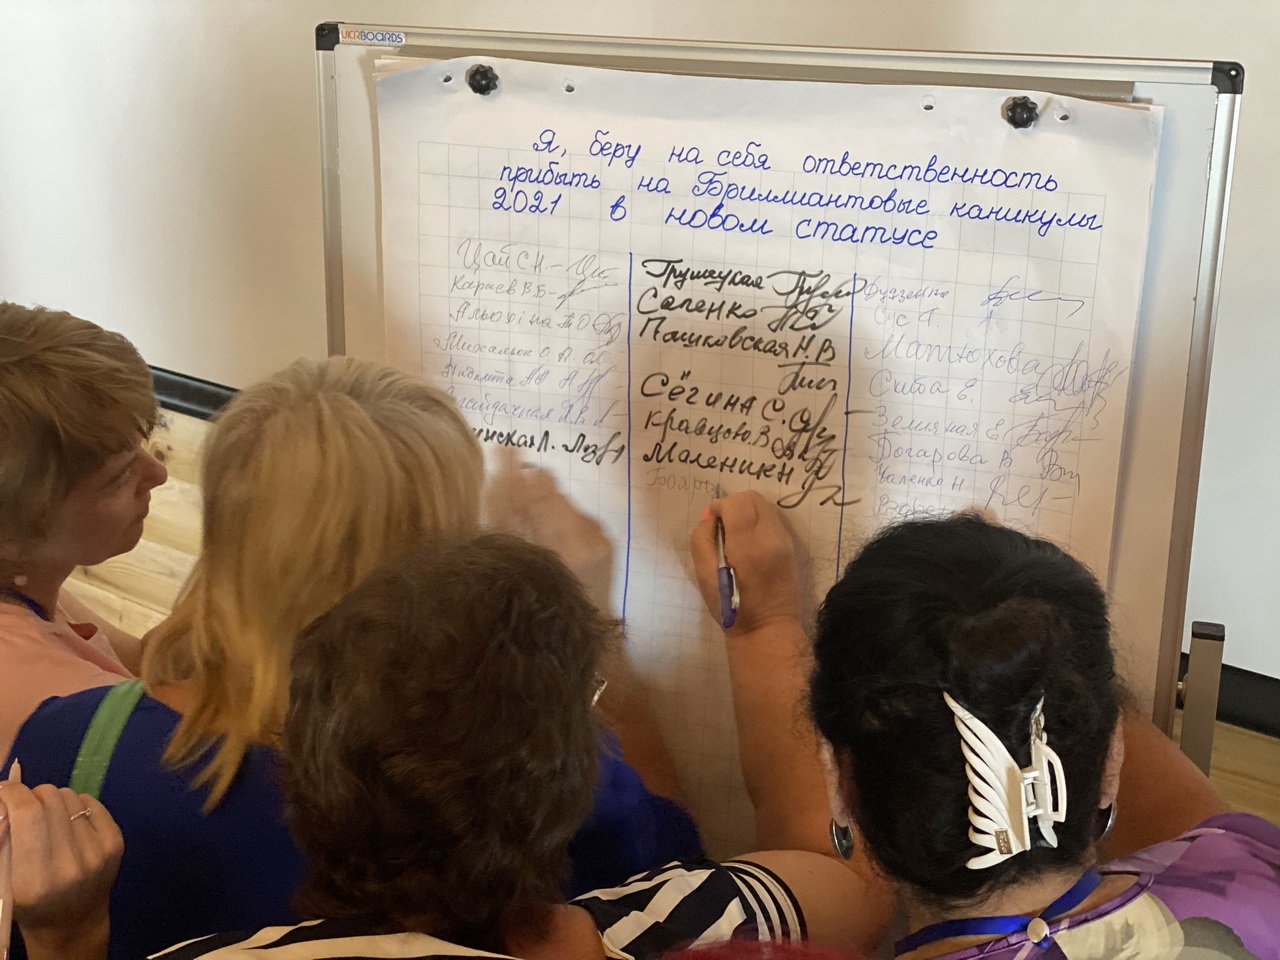 UKRBOARDS
Я, беру на себя ответственность
прибыть на Бриллиантовые каникулы
2021 в новом статусе
Цай С.Н.
Караев В.Б.
Альохіна Т О
Михалюк О А
Грушецкая
Сапенко
Пашковская Н.В
Сёгина С.
Кравцов В
Маленик Н
Бояр
Сус Т.
Матюхова
Сита Е.
Земляная Е.
Погарова В
Чаленко Н